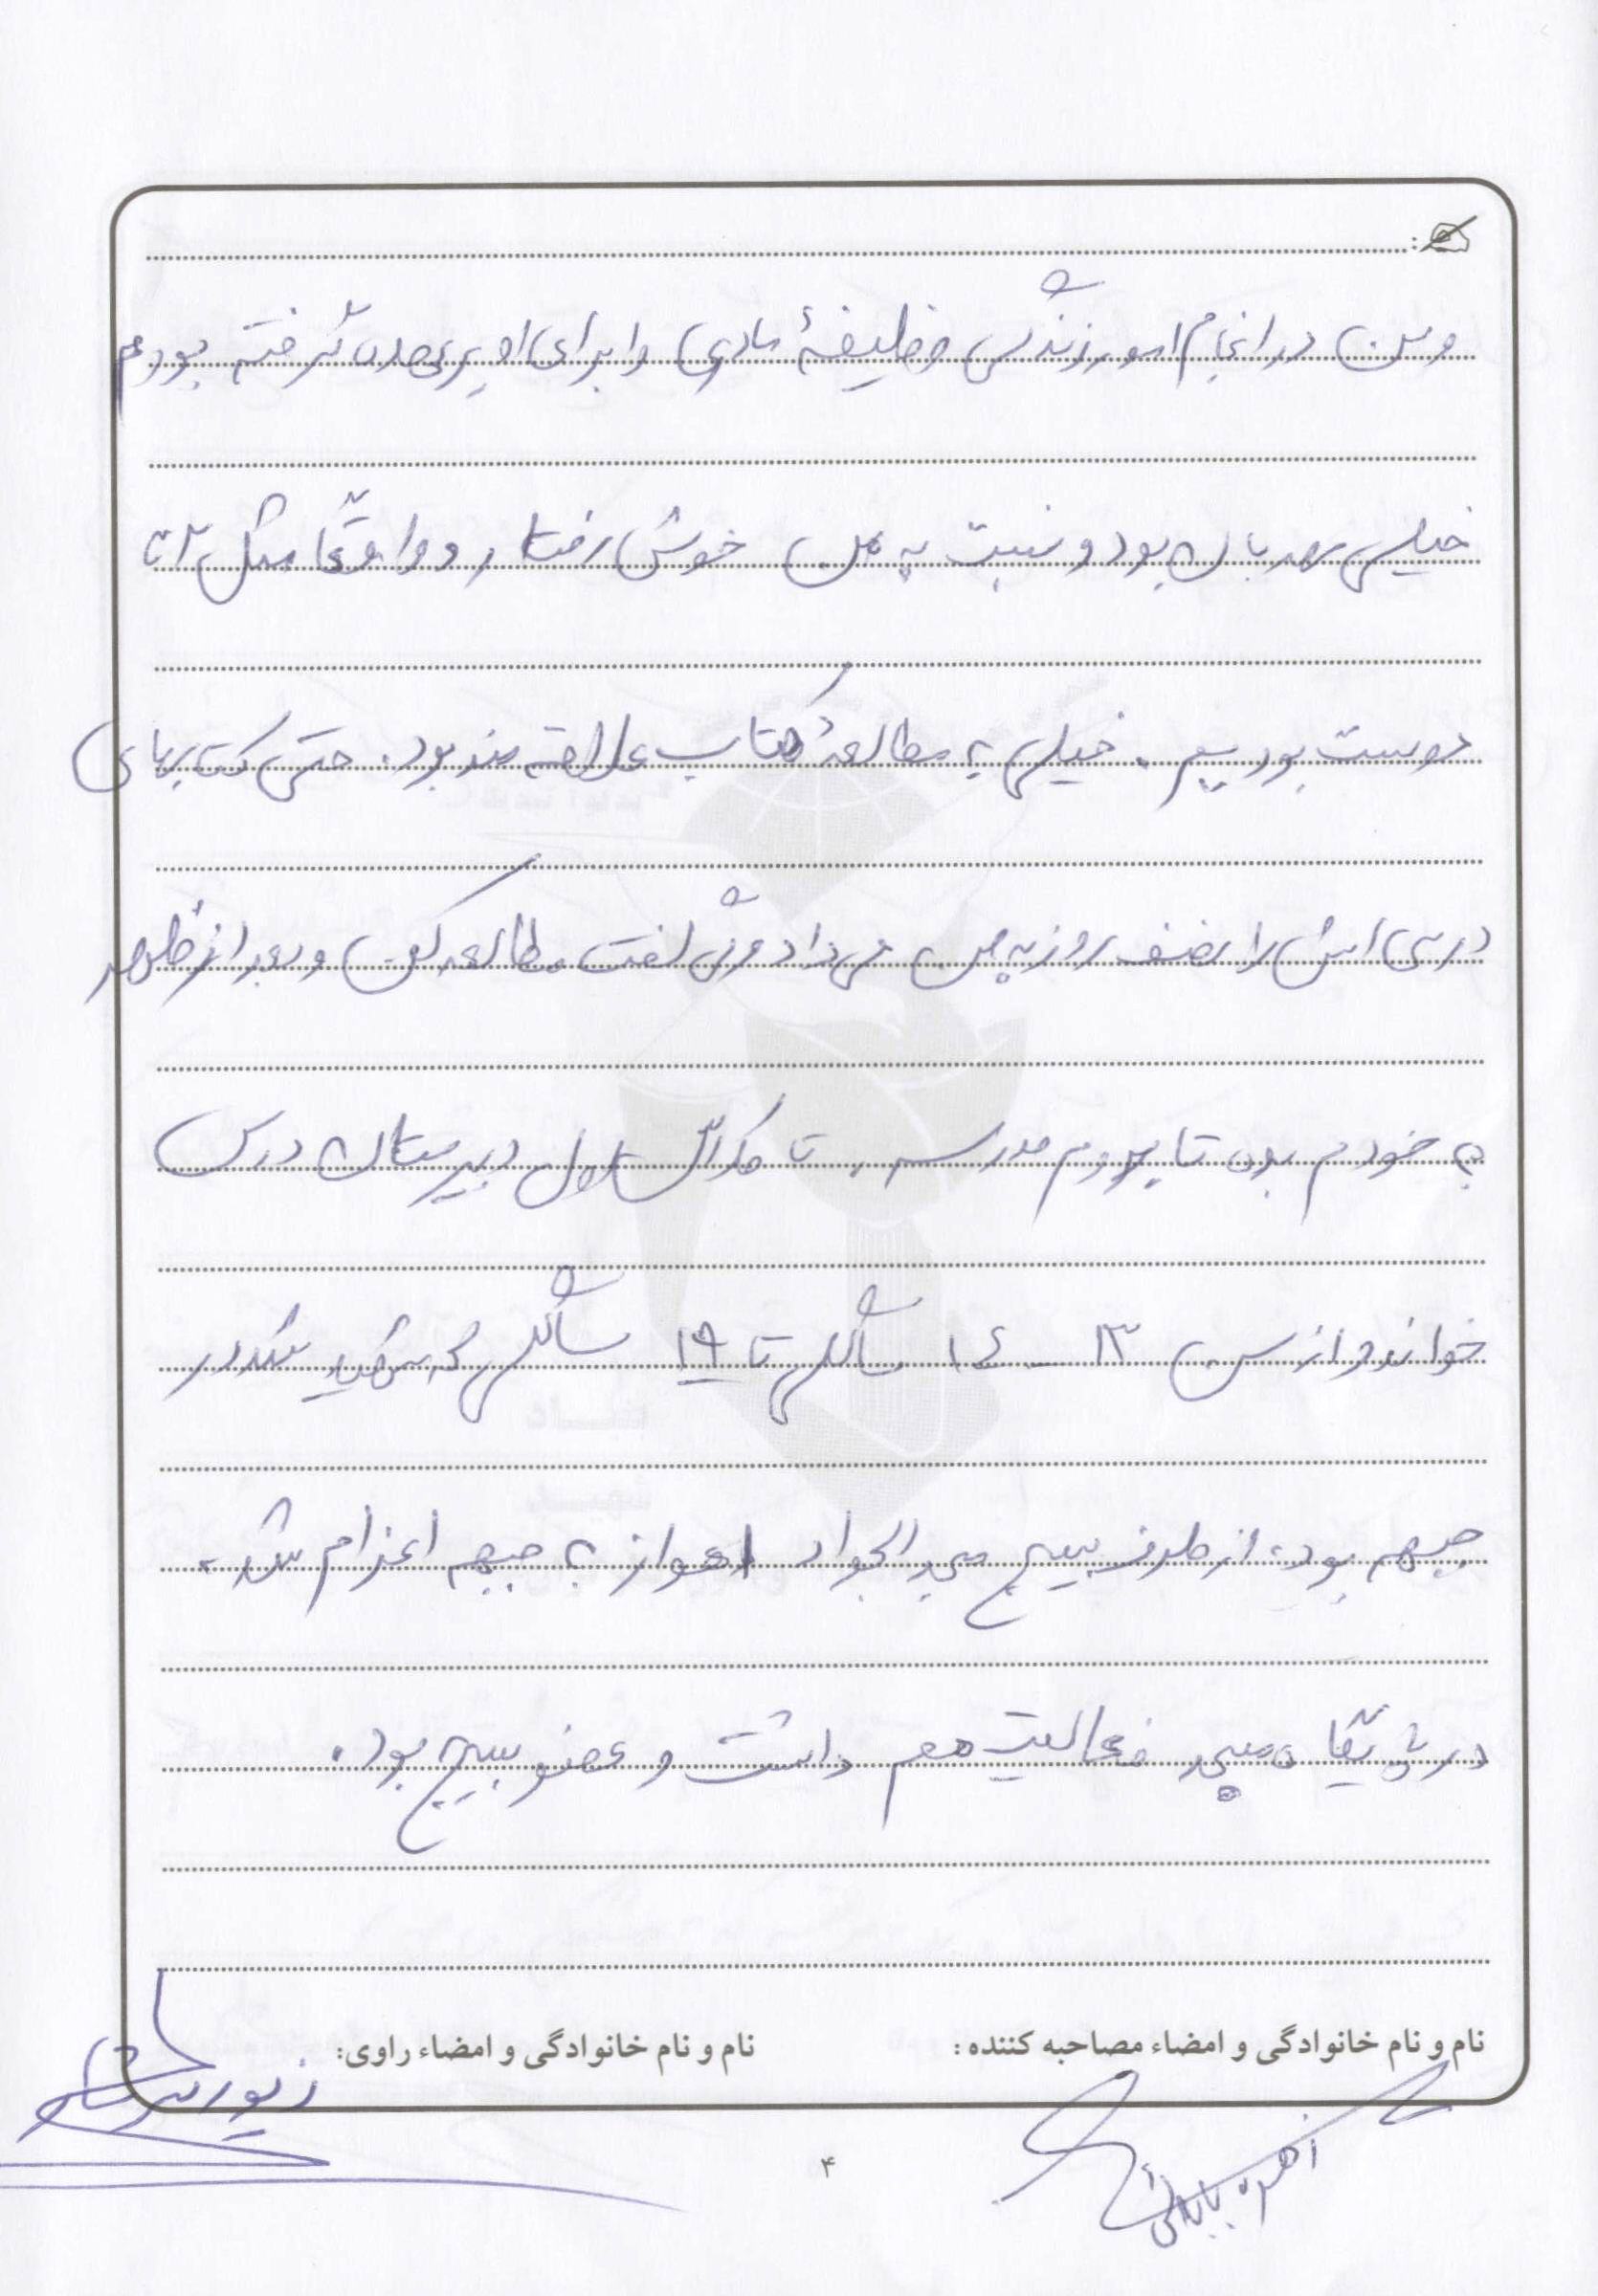 و من در انجام امور زندگیش وظیفهٔ مادری را برای او بر عهده گرفته بودم
خیلی مهربان بود و نسبت به من خوش رفتار و واقعاً مثل ۲ تا
دوست بودیم. خیلی به مطالعهٔ کتاب علاقه مند بود. حتی کتابهای
درسی اش را نصف روز به من می داد می گفت مطالعه کن و بعد از ظهر
به خودم بده تا بروم مدرسه. تا کلاس اول دبیرستان درس
خواند و از سن ۱۳ - ۱۴ سالگی تا ۱۹ سالگی که شهید شد در
جبهه بود. از طرف بسیج مسجد الجواد اهواز به جبهه اعزام شد.
در تبلیغات مسجد فعالیت هم داشت و عضو بسیج بود.
نام و نام خانوادگی و امضاء مصاحبه کننده: نام و نام خانوادگی و امضاء راوی:
زهره بابائی
۴